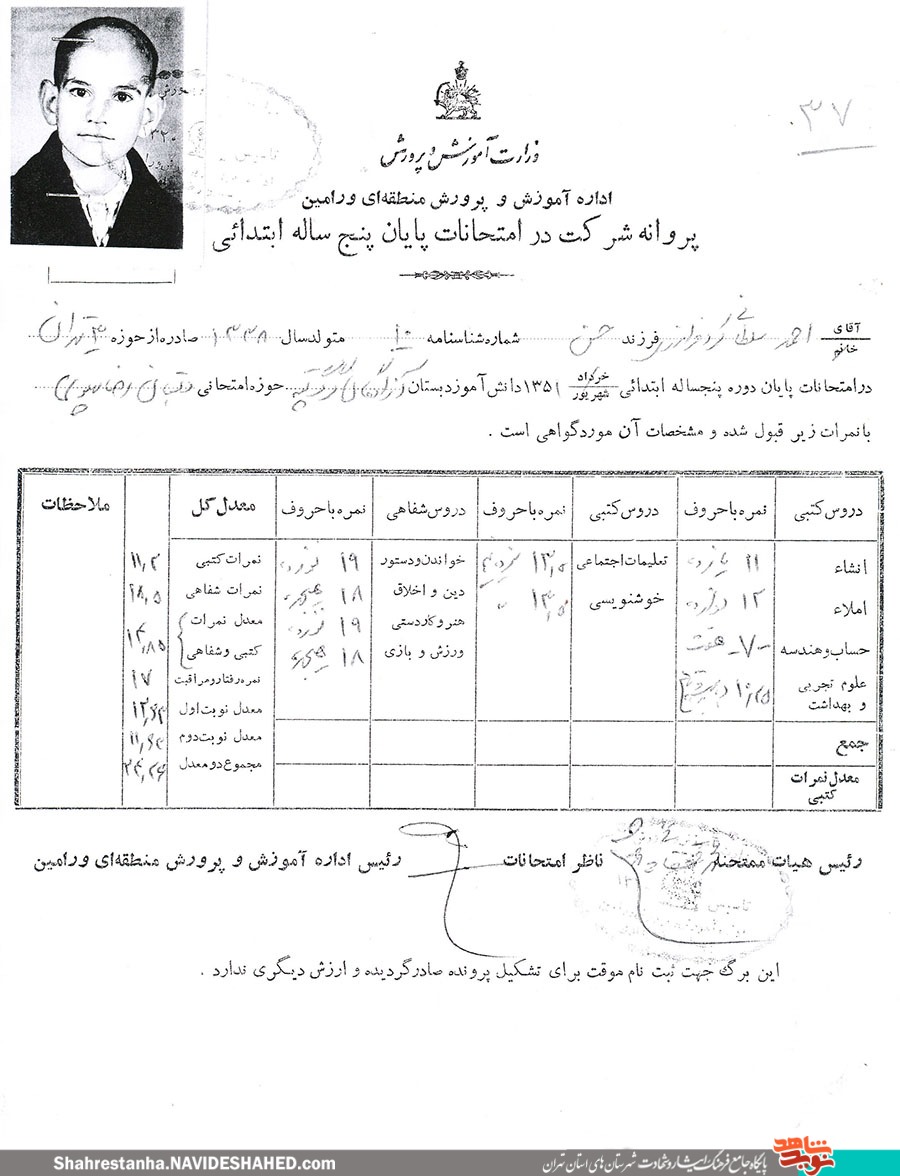 ۰۳۷
وزارت آموزش و پرورش
اداره آموزش و پرورش منطقه‌ای ورامین
پروانه شرکت در امتحانات پایان پنج ساله ابتدائی
آقای خانم احمد فرزند حسن شماره شناسنامه ۱۰ متولد سال ۱۳۳۸ صادره از حوزه ۳ تهران
در امتحانات پایان دوره پنجساله ابتدائی خرداد شهریور ۱۳۵۱ دانش آموز دبستان حوزه امتحانی
با نمرات زیر قبول شده و مشخصات آن مورد گواهی است .
دروس کتبی نمره با حروف دروس کتبی نمره با حروف دروس شفاهی نمره با حروف معدل کل ملاحظات
انشاء ۱۱ یازده تعلیمات اجتماعی ۱۳,۵ خواندن و دستور ۱۹ نوزده نمرات کتبی ۱۱,۲
املاء ۱۲ دوازده خوشنویسی ۱۳,۵ دین و اخلاق ۱۸ هیجده نمرات شفاهی ۱۸,۵
حساب و هندسه -۷- هفت هنر و کاردستی ۱۹ نوزده معدل نمرات کتبی و شفاهی ۱۴,۸۵
علوم تجربی و بهداشت ۱۰,۲۵ ورزش و بازی ۱۸ هیجده نمره رفتار و مراقبت ۱۷
معدل نوبت اول ۱۲,۶۳
جمع معدل نوبت دوم ۱۱,۶۳
معدل نمرات کتبی مجموع دو معدل ۲۴,۲۶
رئیس هیات ممتحنه ناظر امتحانات رئیس اداره آموزش و پرورش منطقه‌ای ورامین
این برگ جهت ثبت نام موقت برای تشکیل پرونده صادر گردیده و ارزش دیگری ندارد .
Shahrestanha.NAVIDESHAHED.com
نوید شاهد
پایگاه جامع فرهنگ ایثار و شهادت شهرستان های استان تهران